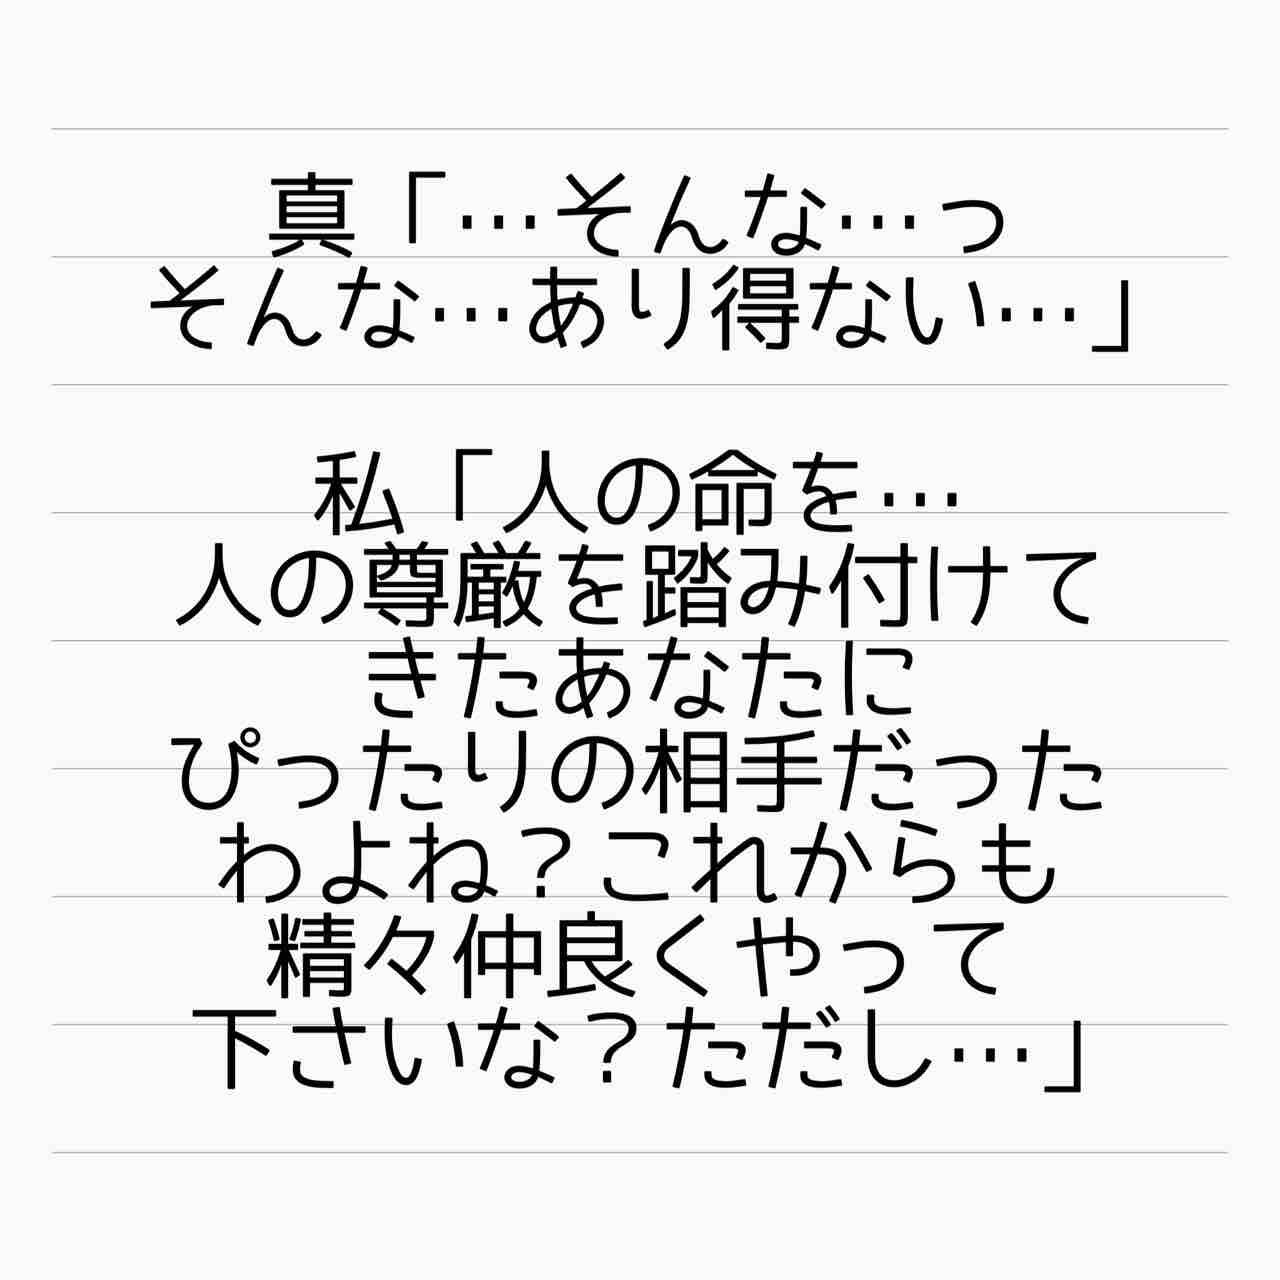 真「…そんな…っ
そんな…あり得ない…」
私「人の命を…
人の尊厳を踏み付けて
きたあなたに
ぴったりの相手だった
わよね？これからも
精々仲良くやって
下さいな？ただし…」